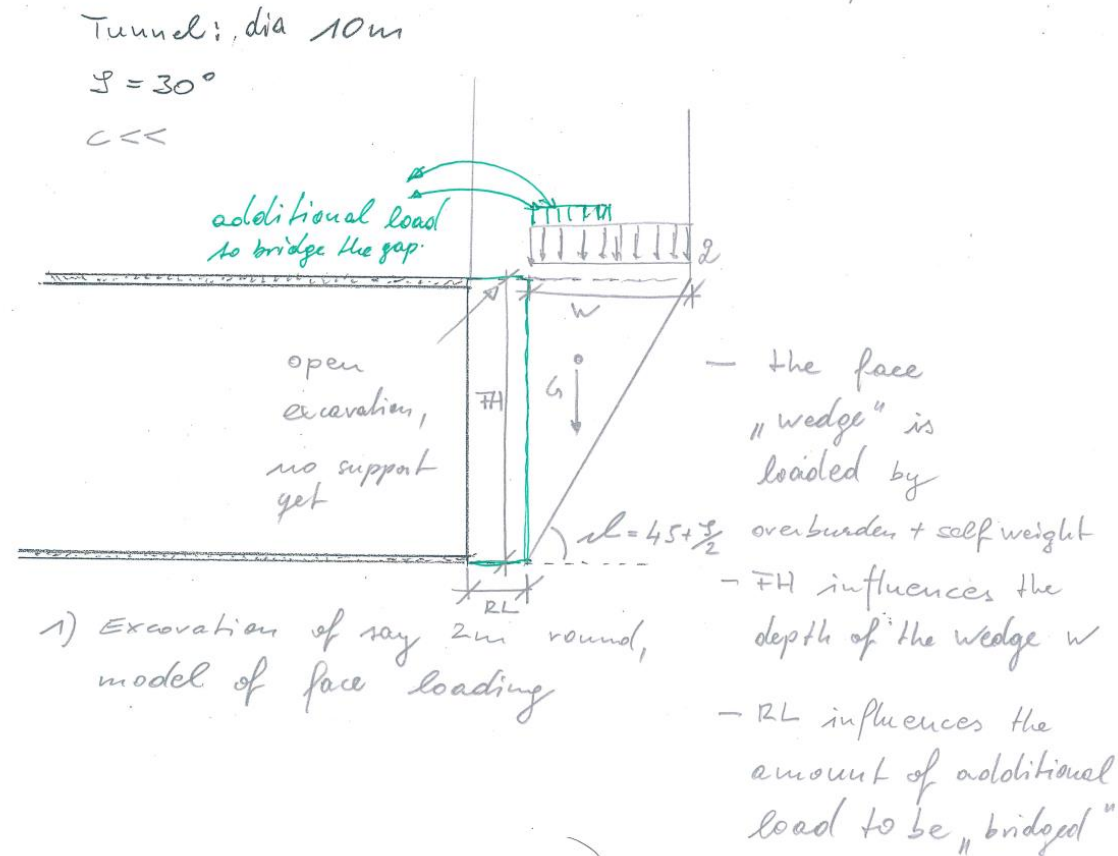 Tunnel: dia 10m
φ = 30°
c <<
additional load
to bridge the gap.
q
w
open
excavation,
no support
yet
FH
G
ϑ = 45+φ/2
RL
1) Excavation of say 2m round,
model of face loading
— the face
„wedge" is
loaded by
overburden + self weight
- FH influences the
depth of the wedge w
- RL influences the
amount of additional
load to be „bridged"